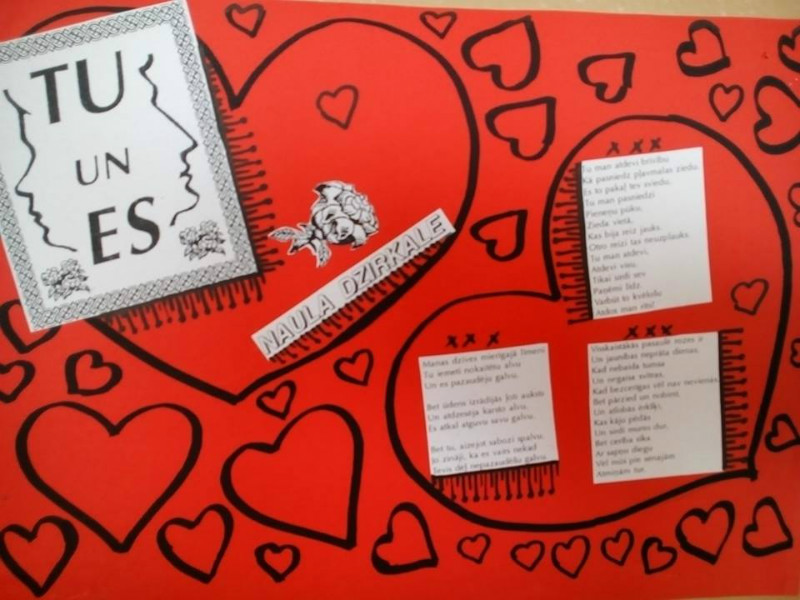 TU
UN
ES
NAULA DZIRKALE
x x x
Tu man atdevi brīvību
Kā pasniedz pļavmalas ziedu.
Es to pakaļ tev sviedu.
Tu man pasniedzi
Pieneņu pūku,
Zieda vietā,
Kas bija reiz jauks.
Otro reizi tas nesaplauks.
Tu man atdevi,
Atdevi visu,
Tikai sirdi sev
Paņēmi līdz.
Varbūt to kvēlošu
Atdos man rīts?
x x x
Manas dzīves mierīgajā līmenī
Tu iemeti nokaitētu alvu
Un es pazaudēju galvu.
Bet ūdens izrādījās ļoti auksts
Un atdzesēja karsto alvu,
Es atkal atguvu savu galvu.
Bet tu, aizejot sabozi spalvu,
jo zināji, ka es vairs nekad
Tevis dēļ nepazaudēšu galvu.
x x x
Visskaistākās pasaulē rozes ir
Un jaunības neprāta dienas,
Kad nebaida tumsa
Un negaisa svītras,
Kad bezcerīgas vēl nav nevienas.
Bet pārzied un nobirst,
Un atlobās ērkšķi,
Kas kāju pēdās
Un sirdī mums dur,
Bet cerība sīka
Ar sapņu diegu
Vēl mūs pie senajām
Atmiņām tur.